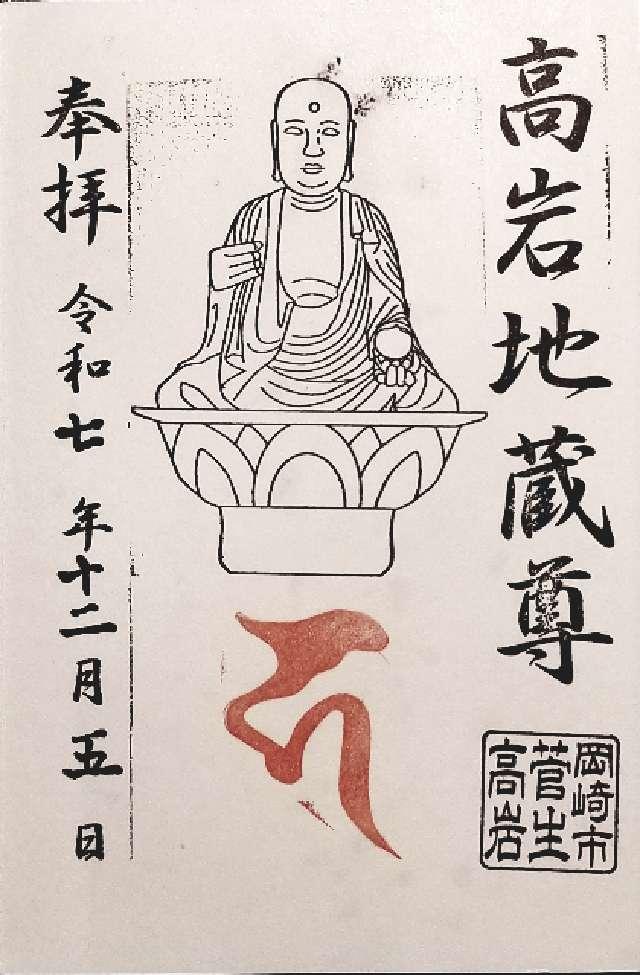 高岩地蔵尊
岡崎市
菅生
高岩
奉拝
令和七年十二月五日